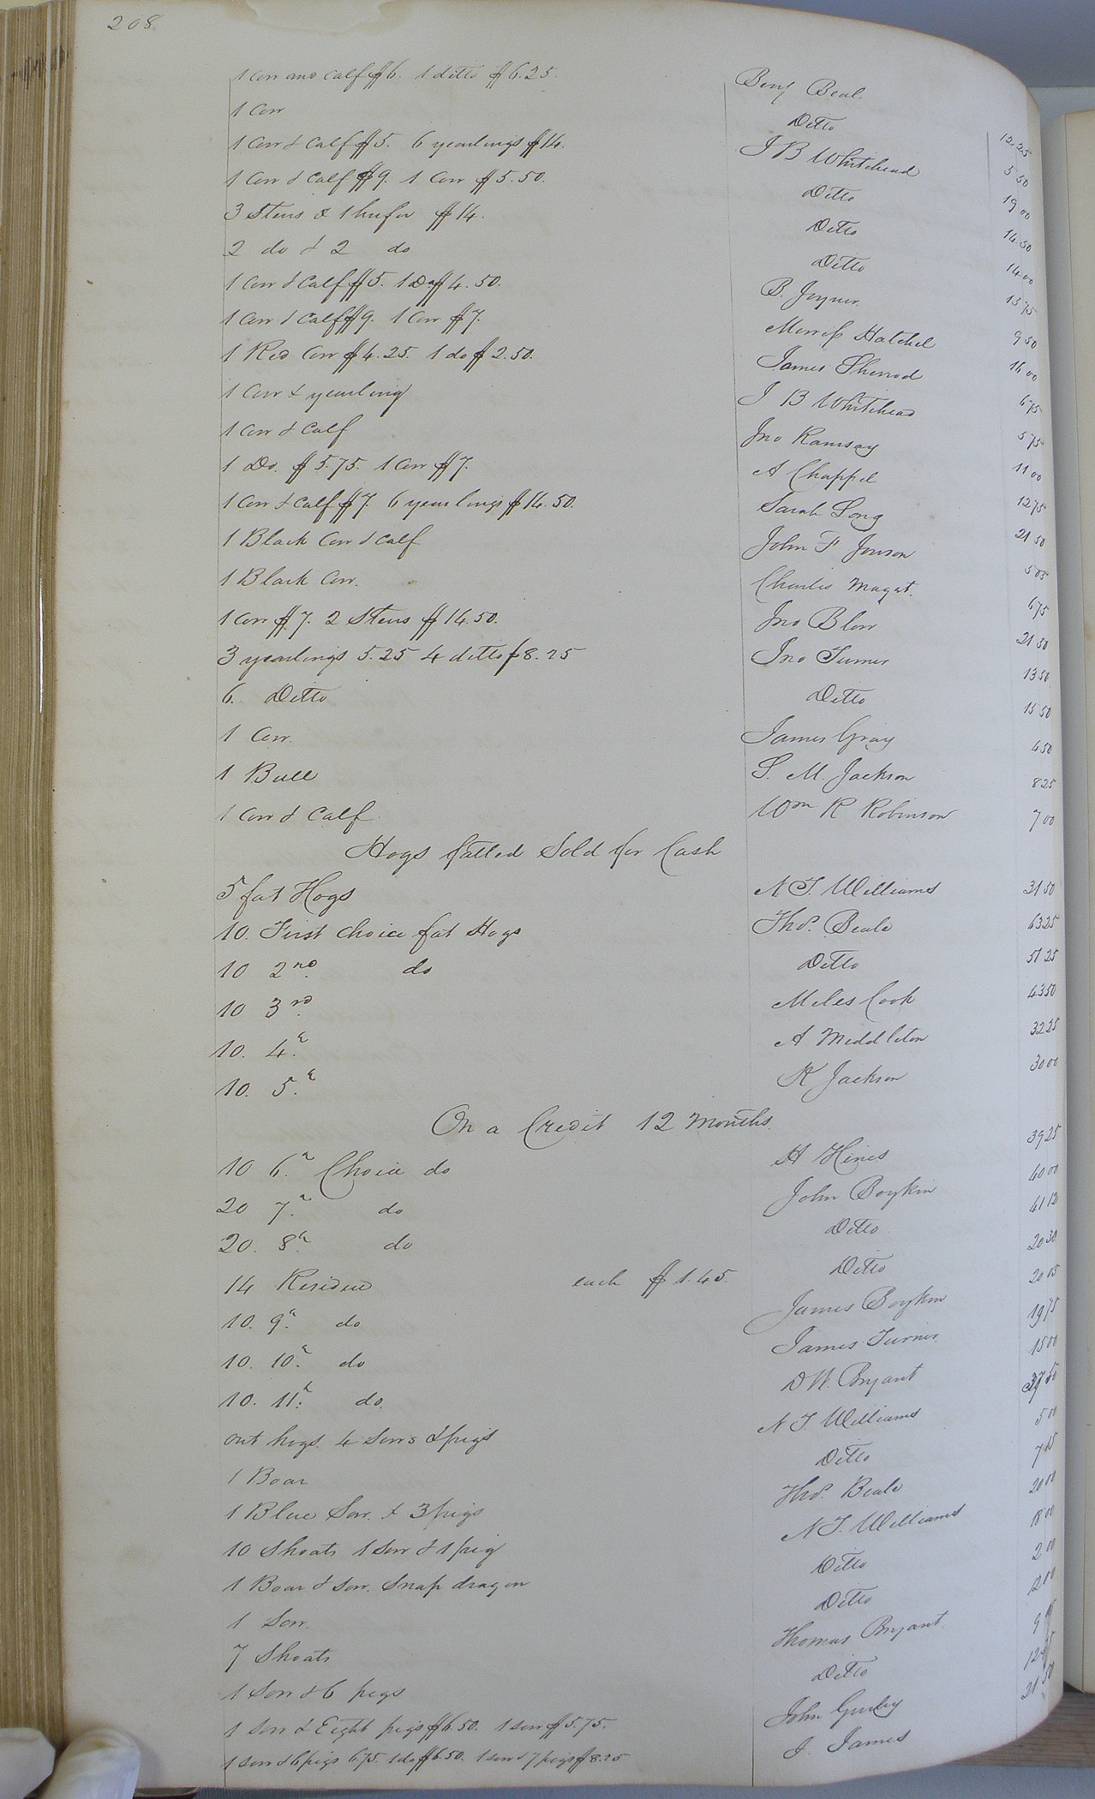 208
1 Cow and Calf $6. 1 ditto $6.25. Benj Beal 12.25
1 Cow Ditto 5 50
1 Cow & Calf $5. 6 yearlings $14. J B Whitehead 19 00
1 Cow & Calf $9. 1 Cow $5.50. Ditto 14.50
3 Steers & 1 heifer $14. Ditto 14 00
2 do & 2 do Ditto 13 75
1 Cow & Calf $5. 1 Do $4.50. B. Joyner. 9 50
1 Cow & Calf $9. 1 Cow $7. Hatchel 16 00
1 Red Cow $4.25. 1 do $2.50. James Sherrod 6 75
1 Cow & yearling J B Whitehead 5 75
1 Cow & Calf Jno Ramsay 11 00
1 Do. $5.75. 1 Cow $7. A Chappel 12 75
1 Cow & Calf $7. 6 yearlings $14.50. Sarah Long 21 50
1 Black Cow & Calf John F Jonson 5 05
1 Black Cow. Charles Magat. 6 75
1 Cow $7. 2 Steers $14.50. Jno Blow 21 50
3 yearlings 5.25 4 ditto $8.25 Jno Turner 13 50
6. Ditto Ditto 15 50
1 Cow. James Gray 4 50
1 Bull S. M. Jackson 8 25
1 Cow & Calf Wm R Robinson 7 00
Hogs fatted Sold for Cash
5 fat Hogs N T. Williams 31 50
10. First Choice fat Hogs Thos. Beale 63 25
10 2nd. do Ditto 51 25
10 3rd. Miles Cook 43 50
10. 4.th A Middleton 32 25
10. 5.th K Jackson 30 00
On a Credit 12 Months.
10 6.th Choice do H Hines 39 25
20 7.th do John Boykin 40 00
20. 8th do Ditto 41 12
14 Residue each $1.45. Ditto 20 30
10. 9.th do James Boykin 20 05
10. 10.th do James Turner 19 75
10. 11.th do. D W. Bryant 15 00
out hogs. 4 Sows & pigs N T Williams 37 50
1 Boar Ditto 5 00
1 Blue Sow. & 3 pigs Thos. Beale 7 25
10 Shoats 1 Sow & 1 pig N T. Williams 20 00
1 Boar & Sow. Snap dragon Ditto 18 00
1 Sow. Ditto 2 00
7 Shoats Thomas Bryant 12 00
1 Sow & 6 pigs Ditto 9
1 Sow & Eight pigs $6.50. 1 sow $5.75. John Gurley 12
1 sow & 6 pigs 6.75 1 do $6.50. 1 sow & 7 pigs $8.25 J. James 21 50